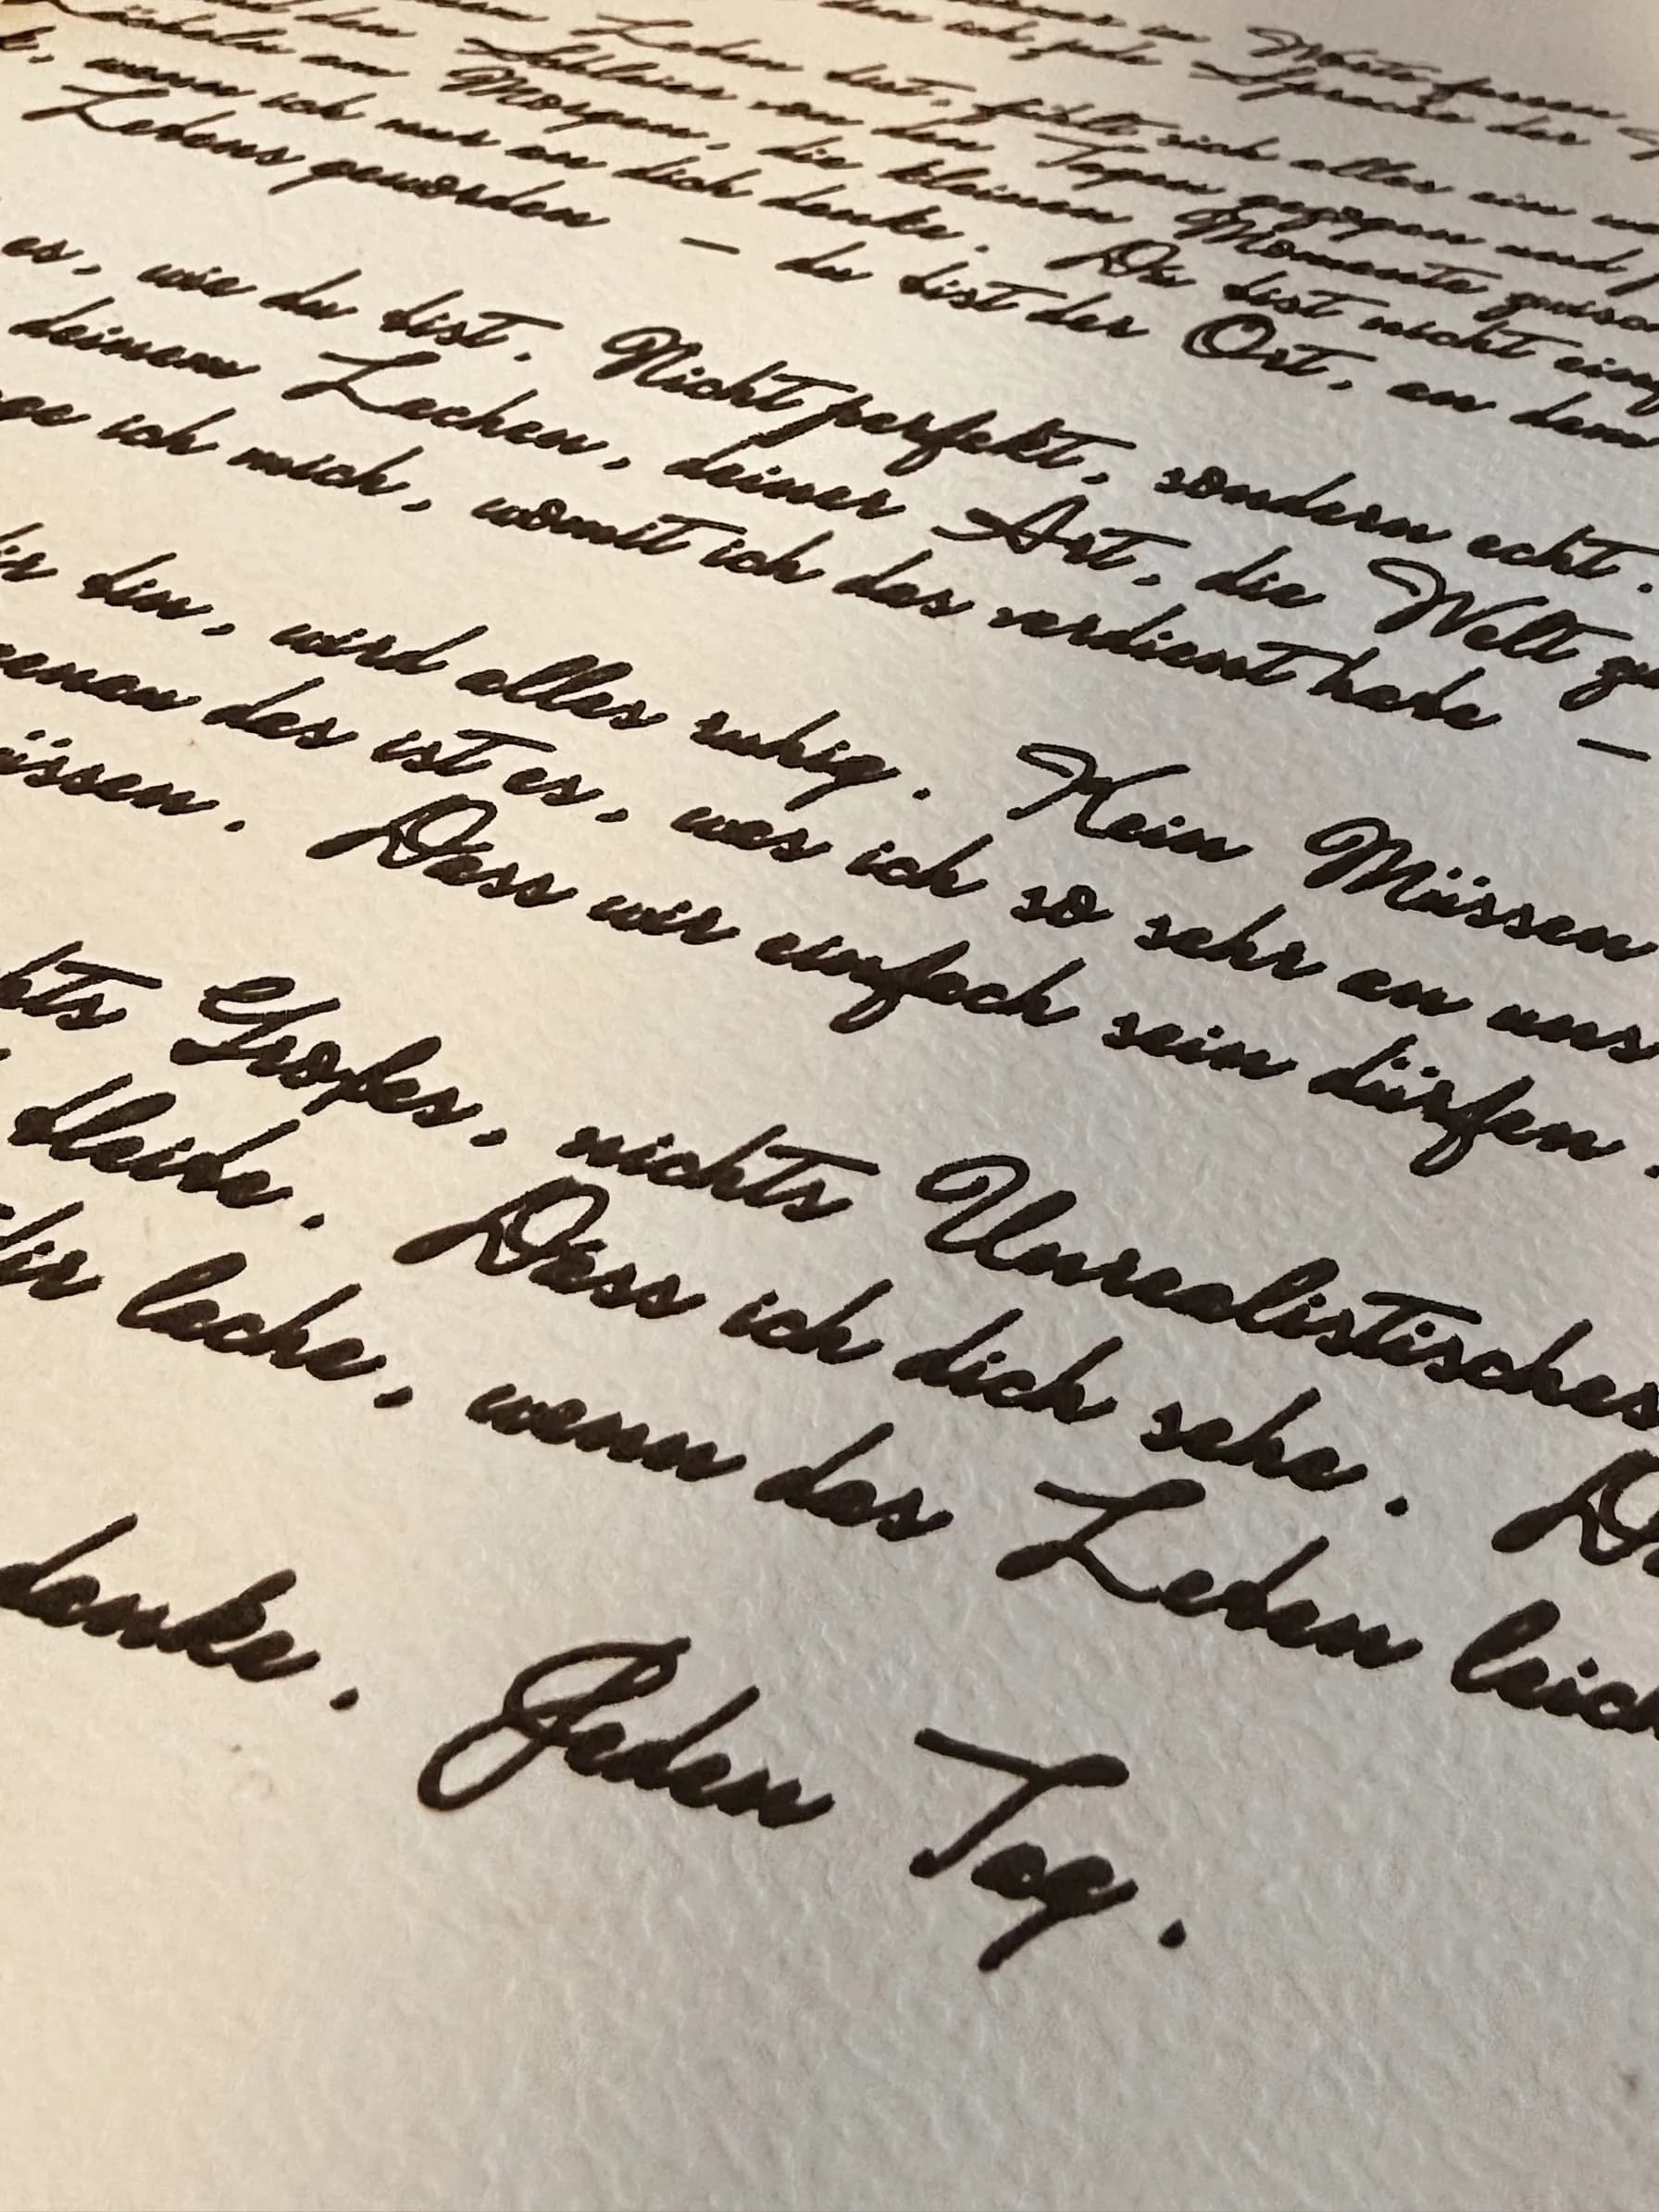 in Worte fassen
den ich jede Sprache der
Leben bist, fühlt sich alles ein
den Schleier von den Tagen gezogen und
Lächeln am Morgen, die kleinen Momente
wenn ich nur an dich denke. Du bist nicht
Lebens geworden – du bist der Ort, an dem
es, wie du bist. Nicht perfekt, sondern echt.
deinem Lachen, deiner Art, die Welt
ich mich, womit ich das verdient habe –
bin, wird alles ruhig. Kein Müssen
das ist es, was ich so sehr an uns
Dass wir einfach sein dürfen.
Großes, nichts Unrealistisches
bleibe. Dass ich dich sehe.
lache, wenn das Leben
denke. Jeden Tag.